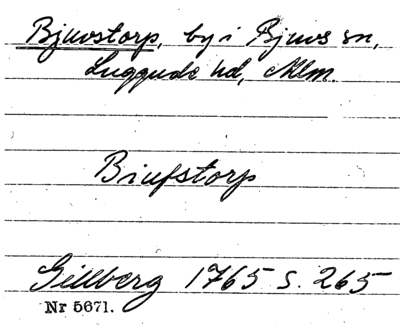 Bjuvstorp, by i Bjuvs sn,
Luggude hd, Mlm.
Biufstorp
Gillberg 1765 s. 265
Nr 5671.